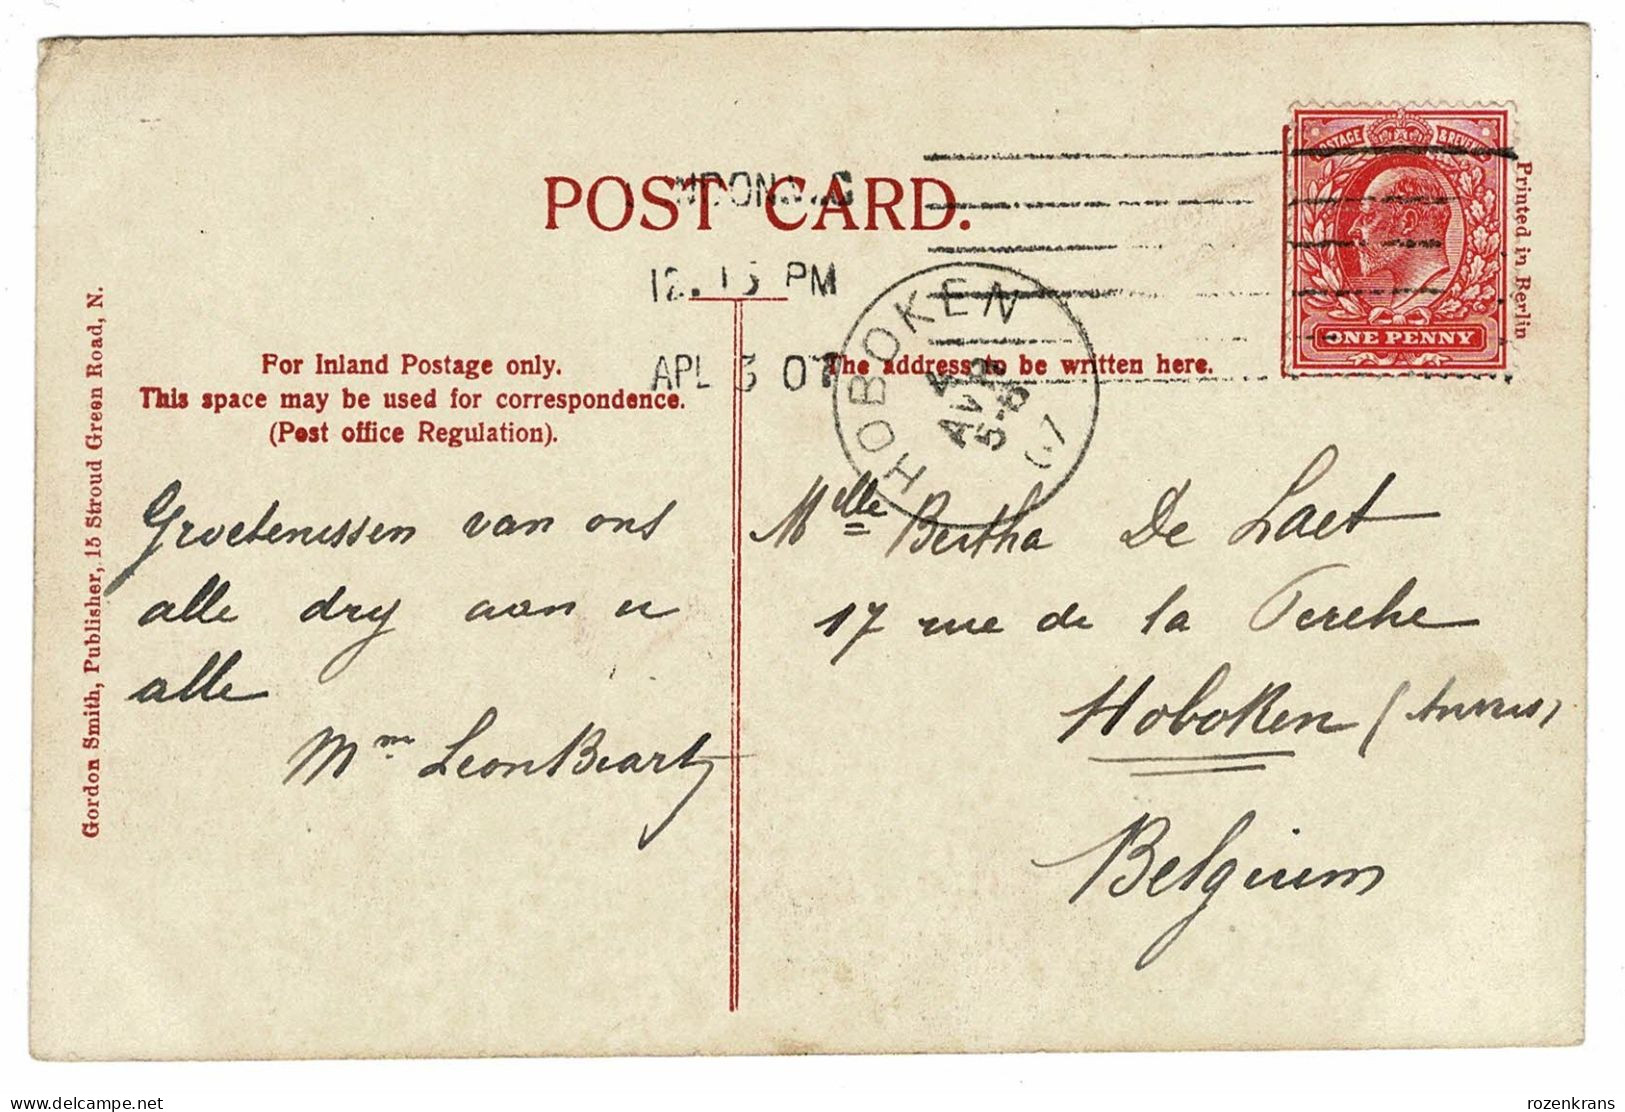 POST CARD.
12.15 PM
APL 3 07
HOBOKEN
4
AVR
5-6
07
POSTAGE & REVENUE
ONE PENNY
Printed in Berlin
For Inland Postage only.
This space may be used for correspondence.
(Post office Regulation).
The address to be written here.
Gordon Smith, Publisher, 15 Stroud Green Road, N.
Groetenissen van ons
alle dry aan u
alle
Mme Leon
Melle Bertha De Laet
17 rue de la Perche
Hoboken (Anvers)
Belgium
delcampe.net
rozenkrans